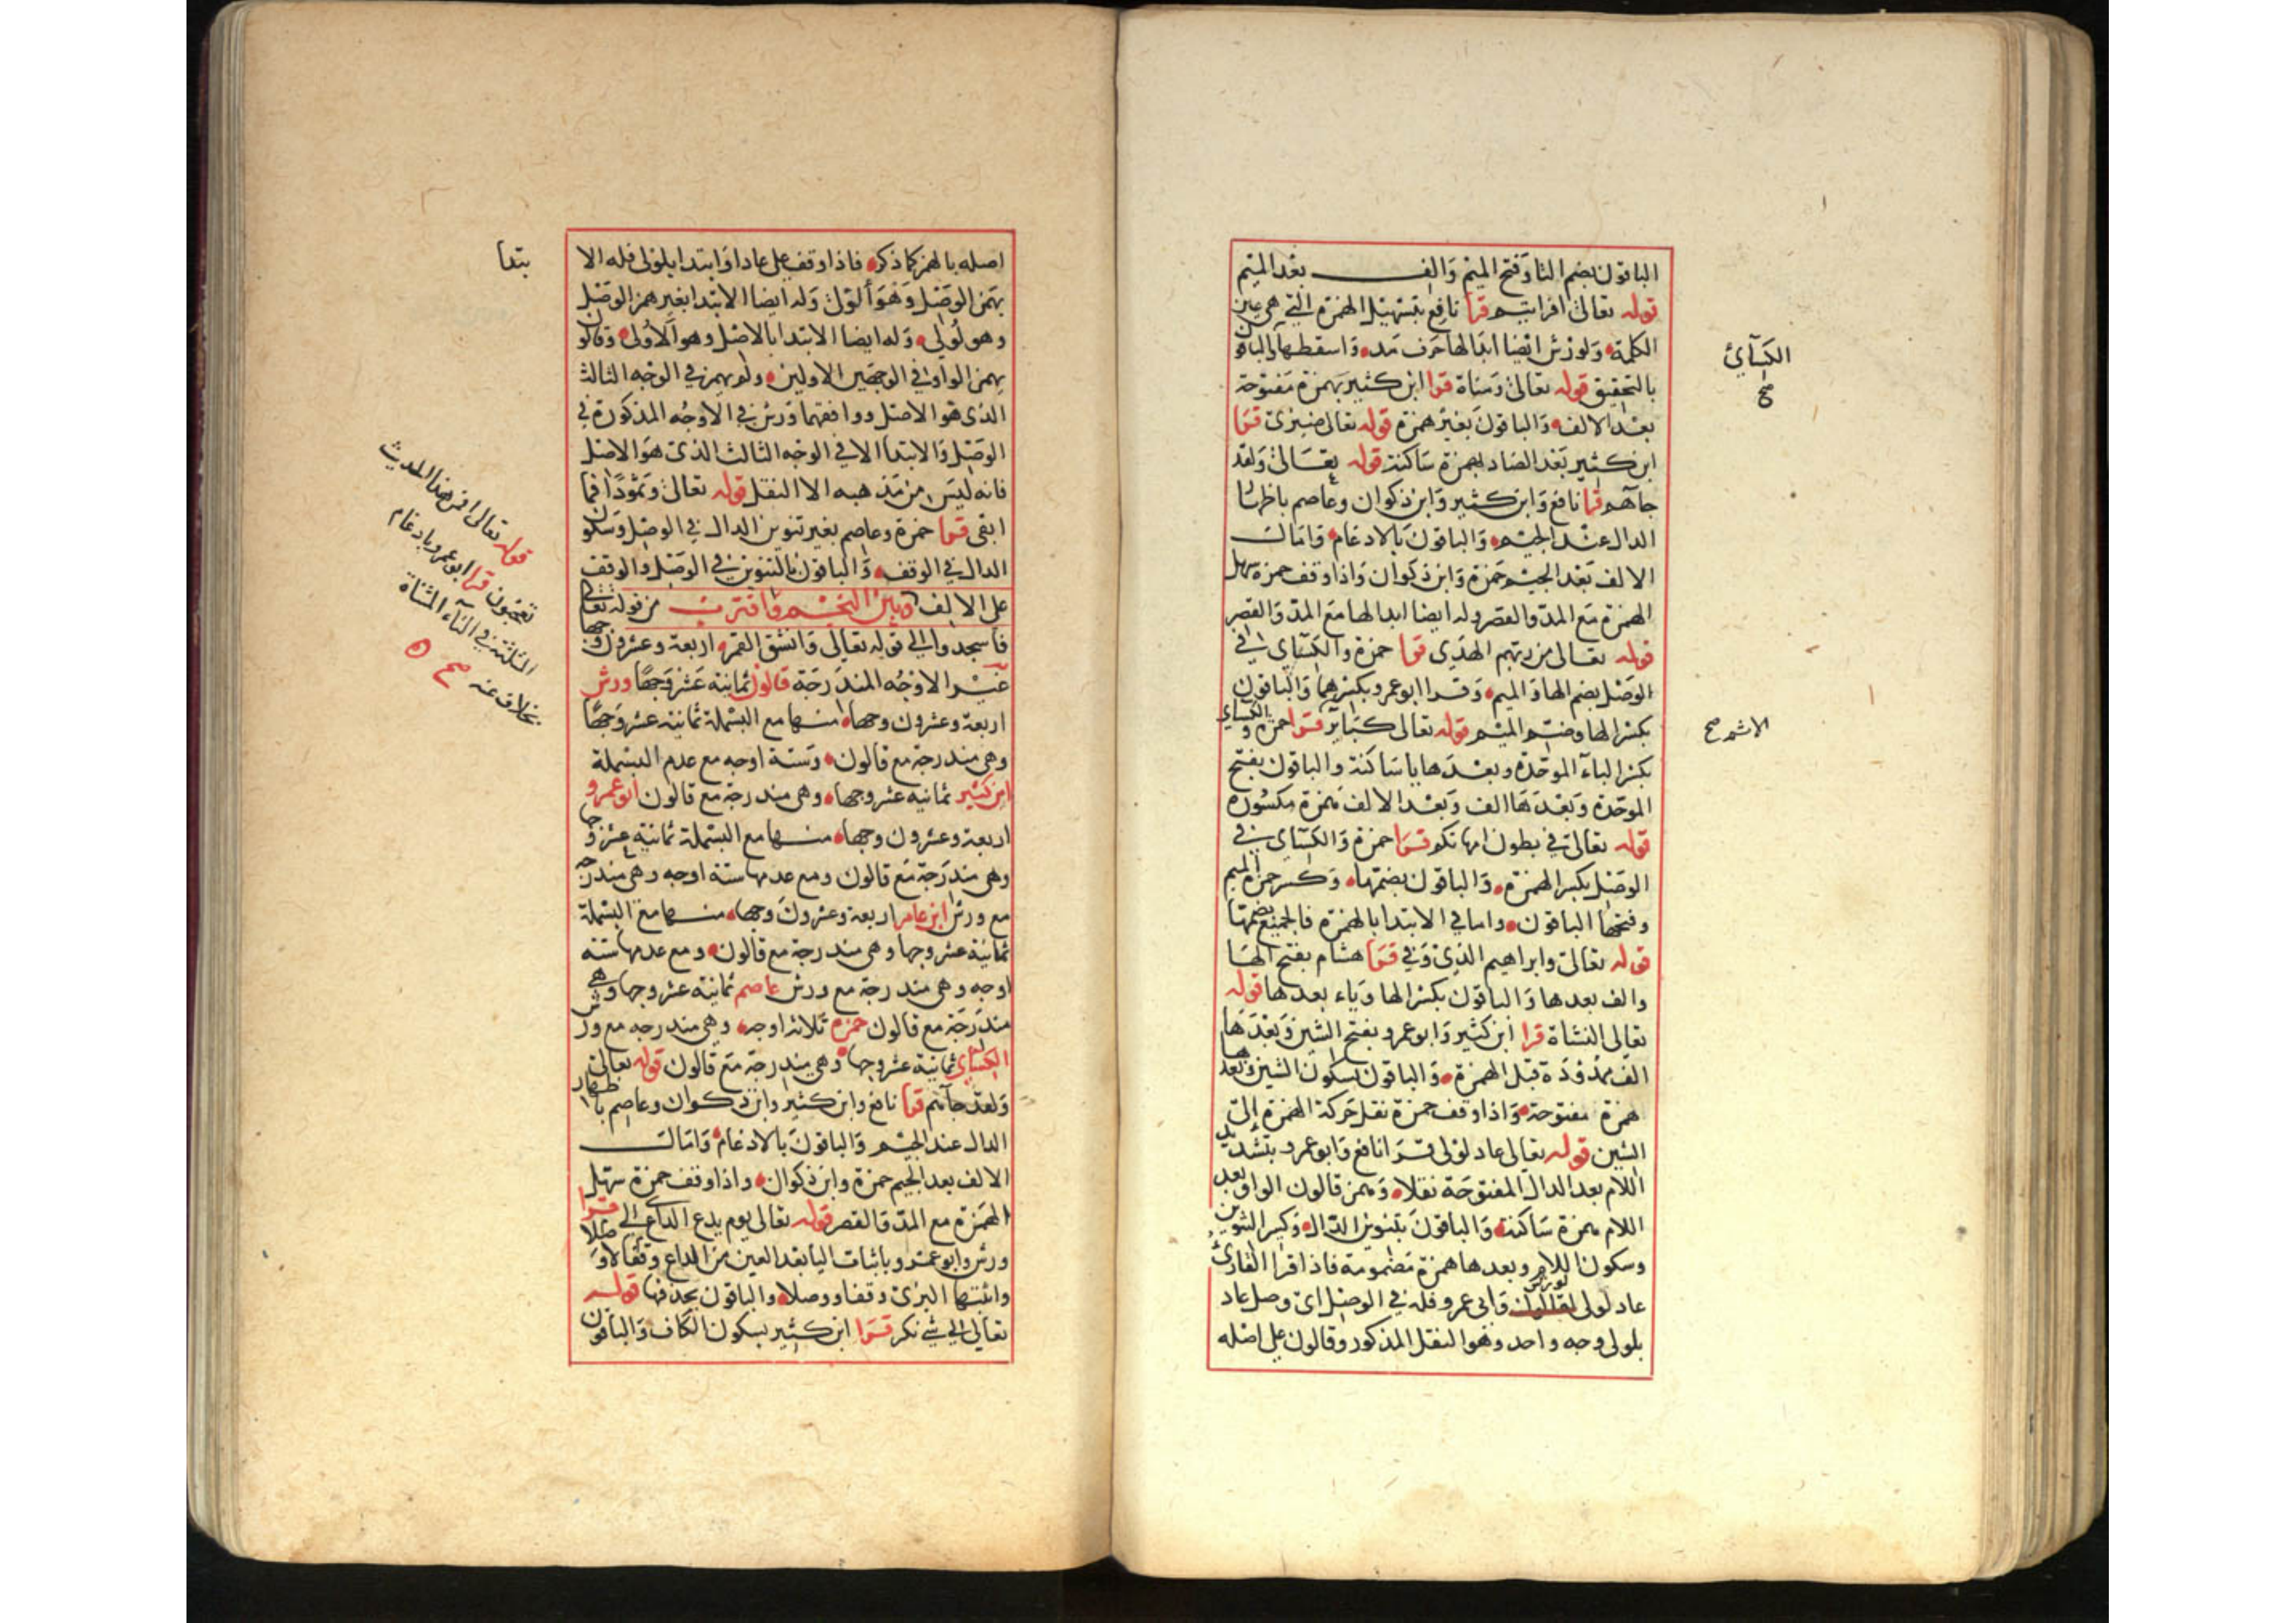 الباقون بضم التا وفتح الميم والف بعد الميم
قوله تعالى افرايتم قرا نافع بتسهيل الهمزة التي هي عين
الكلمة ولورش ايضا ابدالها حرف مد واسقطها والباقون
بالتحقيق قوله تعالى ومناة قرا ابن كثير بهمزة مفتوحة
بعد الالف والباقون بغير همزة قوله تعالى ضيزى قرا
ابن كثير بعد الضاد بهمزة ساكنة قوله تعالى ولقد
جاهم قرا نافع وابن كثير وابن ذكوان وعاصم باظهار
الدال عند الجيم والباقون بالادغام وامالت
الالف بعد الجيم حمزة وابن ذكوان واذا وقف حمزة سهل
الهمزة مع المد والقصر وله ايضا ابدالها مع المد والقصر
قوله تعالى من ربهم الهدى قرا حمزة والكسآي في
الوصل بضم الها والميم وقرا ابو عمرو بكسرهما والباقون
بكسر الها وضم الميم قوله تعالى كبآير قرا حمزة والكسآي
بكسر البآء الموحدة وبعدها يا ساكنة والباقون بفتح
الموحدة وبعدها الف وبعد الالف همزة مكسورة
قوله تعالى في بطون امهاتكم قرا حمزة والكسآي في
الوصل بكسر الهمزة والباقون بضمها وكسر حمزة الميم
وفتحها الباقون واما في الابتدا بالهمزة فالجميع بضمها
قوله تعالى وابراهيم الذي وفى قرا هشام بفتح الها
والف بعدها والباقون بكسر الها وياء بعدها قوله
تعالى النشاة قرا ابن كثير وابو عمرو بفتح الشين وبعدها
الف ممدودة قبل الهمزة والباقون بسكون الشين وبعدها
همزة مفتوحة واذا وقف حمزة نقل حركة الهمزة الى
الشين قوله تعالى عاد لولى قرا نافع وابو عمرو بتشديد
اللام بعد الدال المفتوحة نقلا وهمز قالون الواو بعد
اللام بهمزة ساكنة والباقون بتنوين الدال وكسر التنوين
وسكون اللام وبعدها همزة مضمومة فاذا قرا القارئ
عاد لولى لقالون لورش وابى عمرو فله في الوصل اى وصل عاد
بلولى وجه واحد وهو النقل المذكور وقالون على اصله
الكسآئ
صح
صح
اصله بالهمز كما ذكر فاذا وقف على عادا وابتدا بلولى فله الا
بتدا
بهمز الوصل وهو ألولى وله ايضا الابتدا بغير همز الوصل
وهو لُولى وله ايضا الابتدا بالاصل وهو الاولى وقالون
يهمز الواو في الوجهين الاولين ولم يهمز في الوجه الثالث
الذي هو الاصل ووافقهما ورش في الاوجه المذكورة في
الوصل والابتدا الا في الوجه الثالث الذي هو الاصل
فانه ليس من مذهبه الا النقل قوله تعالى وثمودا فما
ابقى قرا حمزة وعاصم بغير تنوين الدال في الوصل وسكون
الدال في الوقف والباقون بالتنوين في الوصل والوقف
على الالف وبين النجم واقتربت من قوله تعالى
فاسجدوا الى قوله تعالى وانشق القمر اربعة وعشرون وجها
غير الاوجه المندرجة قالون ثمانية عشر وجها ورش
اربعة وعشرون وجها منها مع البسملة ثمانية عشر وجها
وهي مندرجة مع قالون وستة اوجه مع عدم البسملة
ابن كثير ثمانية عشر وجها وهي مندرجة مع قالون ابو عمرو
اربعة وعشرون وجها منها مع البسملة ثمانية عشر وجها
وهي مندرجة مع قالون ومع عدمها ستة اوجه وهي مندرجة
مع ورش ابن عامر اربعة وعشرون وجها منها مع البسملة
ثمانية عشر وجها وهي مندرجة مع قالون ومع عدمها ستة
اوجه وهي مندرجة مع ورش عاصم ثمانية عشر وجها وهي
مندرجة مع قالون حمزة ثلاثة اوجه وهي مندرجه مع ورش
الكسآي ثمانية عشر وجها وهي مندرجة مع قالون قوله تعالى
ولقد جآهم قرا نافع وابن كثير وابن ذكوان وعاصم باظهار
الدال عند الجيم والباقون بالادغام وامالت
الالف بعد الجيم حمزة وابن ذكوان واذا وقف حمزة سهل
الهمزة مع المد والقصر قوله تعالى يوم يدع الداع الى قرا
ورش وابو عمرو باثبات اليا بعد العين من الداع وقفا لا وصلا
واثبتها البزي وقفا ووصلا والباقون بحذفها قوله
تعالى الى شي نكر قرا ابن كثير بسكون الكاف والباقون
قوله تعالى افمن هذا الحديث
تعجبون قرا ابو عمرو بادغام
المثلثة في التآء المثناة
بخلاف عنه صح